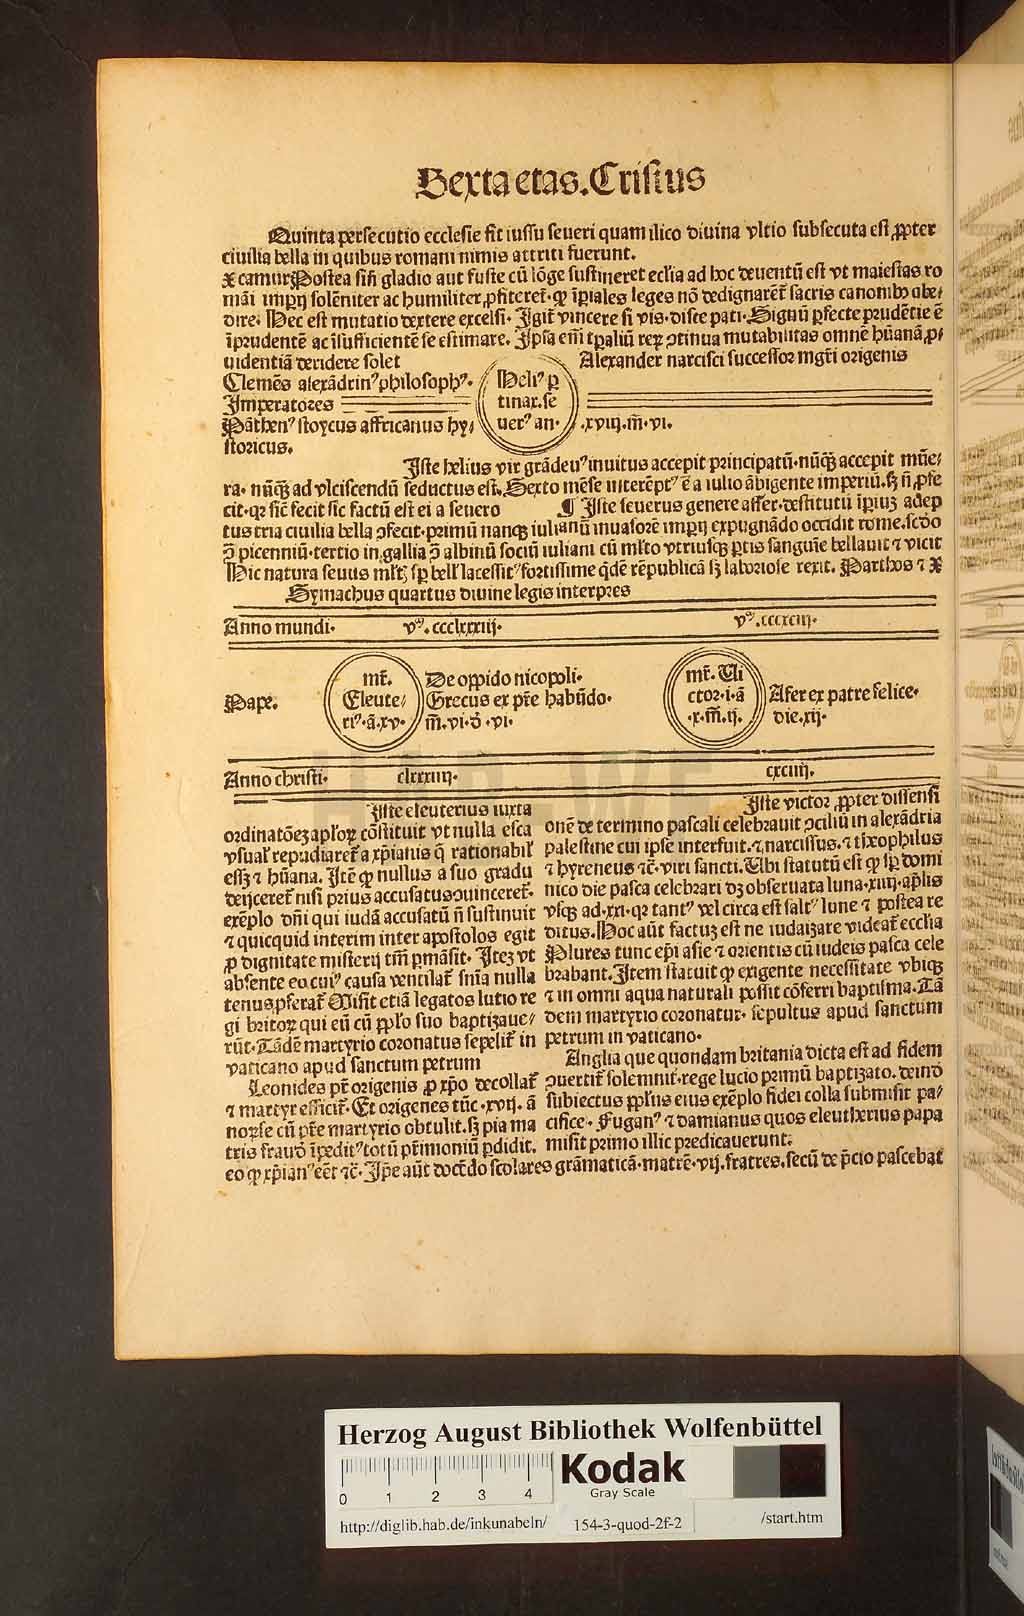 Sexta etas. Cristus
Quinta persecutio ecclesie fit iussu seueri quam ilico diuina vltio subsecuta est ꝓpter
ciuilia bella in quibus romani nimis attriti fuerunt.
Postea siñ gladio aut fuste cū lōge sustineret ecl'ia ad hoc deuentū est vt maiestas ro
māi imperij solēniter ac humiliter ꝓfiteret᷑· ꝙ īperiales leges nō dedignarēt᷑ sacris canonibꝰ obe⸗
dire· Hec est mutatio dextere excelsi· Igit᷑ vincere si vis· disce pati· Signū ꝑfecte prudētie ē
īprudentē ac īsufficientē se estimare. Ipsa em̄ tꝑaliū reꝝ ꝯtinua mutabilitas omnē hūanā ꝓ⸗
uidentiā deridere solet
Alexander narcisci successor mgr̄i origenis
Clemēs alexādrinꝰ philosophꝰ·
Imperatores
Heliꝰ ꝑ
tinax. se
uerꝰ an·
.xviij. m̄· vi.
Pāthenꝰ stoycus affricanus hy⸗
storicus.
Iste helius vir grādeuꝰ inuitus accepit principatū· nūqꝫ accepit mūe⸗
ra· nūqꝫ ad vlciscendū seductus est. Sexto mēse interēptꝰ ē a iulio ābigente imperiū. sꝫ n̄ ꝓfe
cit· qr sic̄ fecit sic factū est ei a seuero ¶ Iste seuerus genere affer· destitutū īperiū adep
tus tria ciuilia bella ꝯfecit· primū nanqꝫ iulianū inuasorē imperij expugnādo occidit rome. scđo
ꝯ̄ picenniū· tertio in gallia ꝯ̄ albinū sociū iuliani cū ml'to vtriusqꝫ ꝑtis sanguīe bellauit ⁊ vicit
Hic natura seuus ml'tꝫ sꝑ bell' lacessitꝰ fortissime qđē rēpublicā sꝫ laboriose rexit. Parthos ⁊
Symachus quartus diuine legis interpres
Anno mundi· vᵐ. ccclxxxiij· vᵐ. cccxciij·
Pape.
mr̄.
Eleute⸗
riꝰ· ā· xv·
De oppido nicopoli·
Grecus ex pr̄e habūdo·
m̄. vi· đ· vi·
mr̄. Ui
ctor· i· ā
·x. m̄. ij.
Afer ex patre felice·
die. xij·
Anno christi· clxxxiij· cxciij.
Iste eleuterius iuxta
ordinatōeꝫ apl'oꝝ cōstituit vt nulla esca
vsual' repudiaret᷑ a xp̄ianis q̄ rationabil'
essꝫ ⁊ hūana. Itē ꝙ nullus a suo gradu
deijceret᷑ nisi prius accusatus ꝯuinceret᷑·
exēplo dn̄i qui iudā accusatū n̄ sustinuit
⁊ quicquid interim inter apostolos egit
ꝓ dignitate misterij tm̄ ꝑmāsit· Iteꝫ vt
absente eo cuiꝰ causa ventilat᷑ sn̄ia nulla
tenus ꝓferat᷑ Misit etiā legatos lutio re
gi britoꝝ qui eū cū ppl'o suo baptizaue⸗
rūt· Tādē martyrio coronatus sepelit᷑ in
vaticano apud sanctum petrum
Leonides pr̄ origenis ꝓ xp̄o decollat᷑
⁊ martyr efficit᷑· Et origenes tūc· xvij. ā
norꝫ se cū pr̄e martyrio obtulit. sꝫ pia ma
tris fraudꝰ īpeditꝰ totū pr̄imoniū ꝑdidit.
eo ꝙ xp̄ianꝰ eēt ⁊c̄· Ip̄e aūt docēdo scolares grāmaticā· matrē· vij. fratres. secū de p̄cio pascebat
Iste victor ꝓpter dissensi
onē de termino pascali celebrauit ꝯciliū in alexādria
palestine cui ipse interfuit· ⁊ narcissus. ⁊ theophilus
⁊ hyreneus ⁊c̄· viri sancti. Ubi statutū est ꝙ sꝑ domi
nico die pasca celebrari dꝫ obseruata luna· xiiij· apl̄is
vsqꝫ ad. xxi· qr tantꝰ vel circa est saltꝰ lune ⁊ postea re
ditus. Hoc aūt factuꝫ est ne iudaizare videat᷑ eccl̄ia
Plures tunc ep̄i asie ⁊ orientis cū iudeis pasca cele
brabant. Item statuit ꝙ exigente necessitate vbiqꝫ
⁊ in omni aqua naturali possit cōferri baptisma· Tā
dem martyrio coronatur· sepultus apud sanctum
petrum in vaticano·
Anglia que quondam britania dicta est ad fidem
ꝯuertit᷑ solemnit᷑· rege lucio primū baptizato. deinđ
subiectus ppl'us eius exēplo fidei colla submisit pa⸗
cifice· Fuganꝰ ⁊ damianus quos eleutherius papa
misit primo illic predicauerunt.
Herzog August Bibliothek Wolfenbüttel
0 1 2 3 4
Kodak
Gray Scale
http://diglib.hab.de/inkunabeln/ 154-3-quod-2f-2 /start.htm
HAB WF